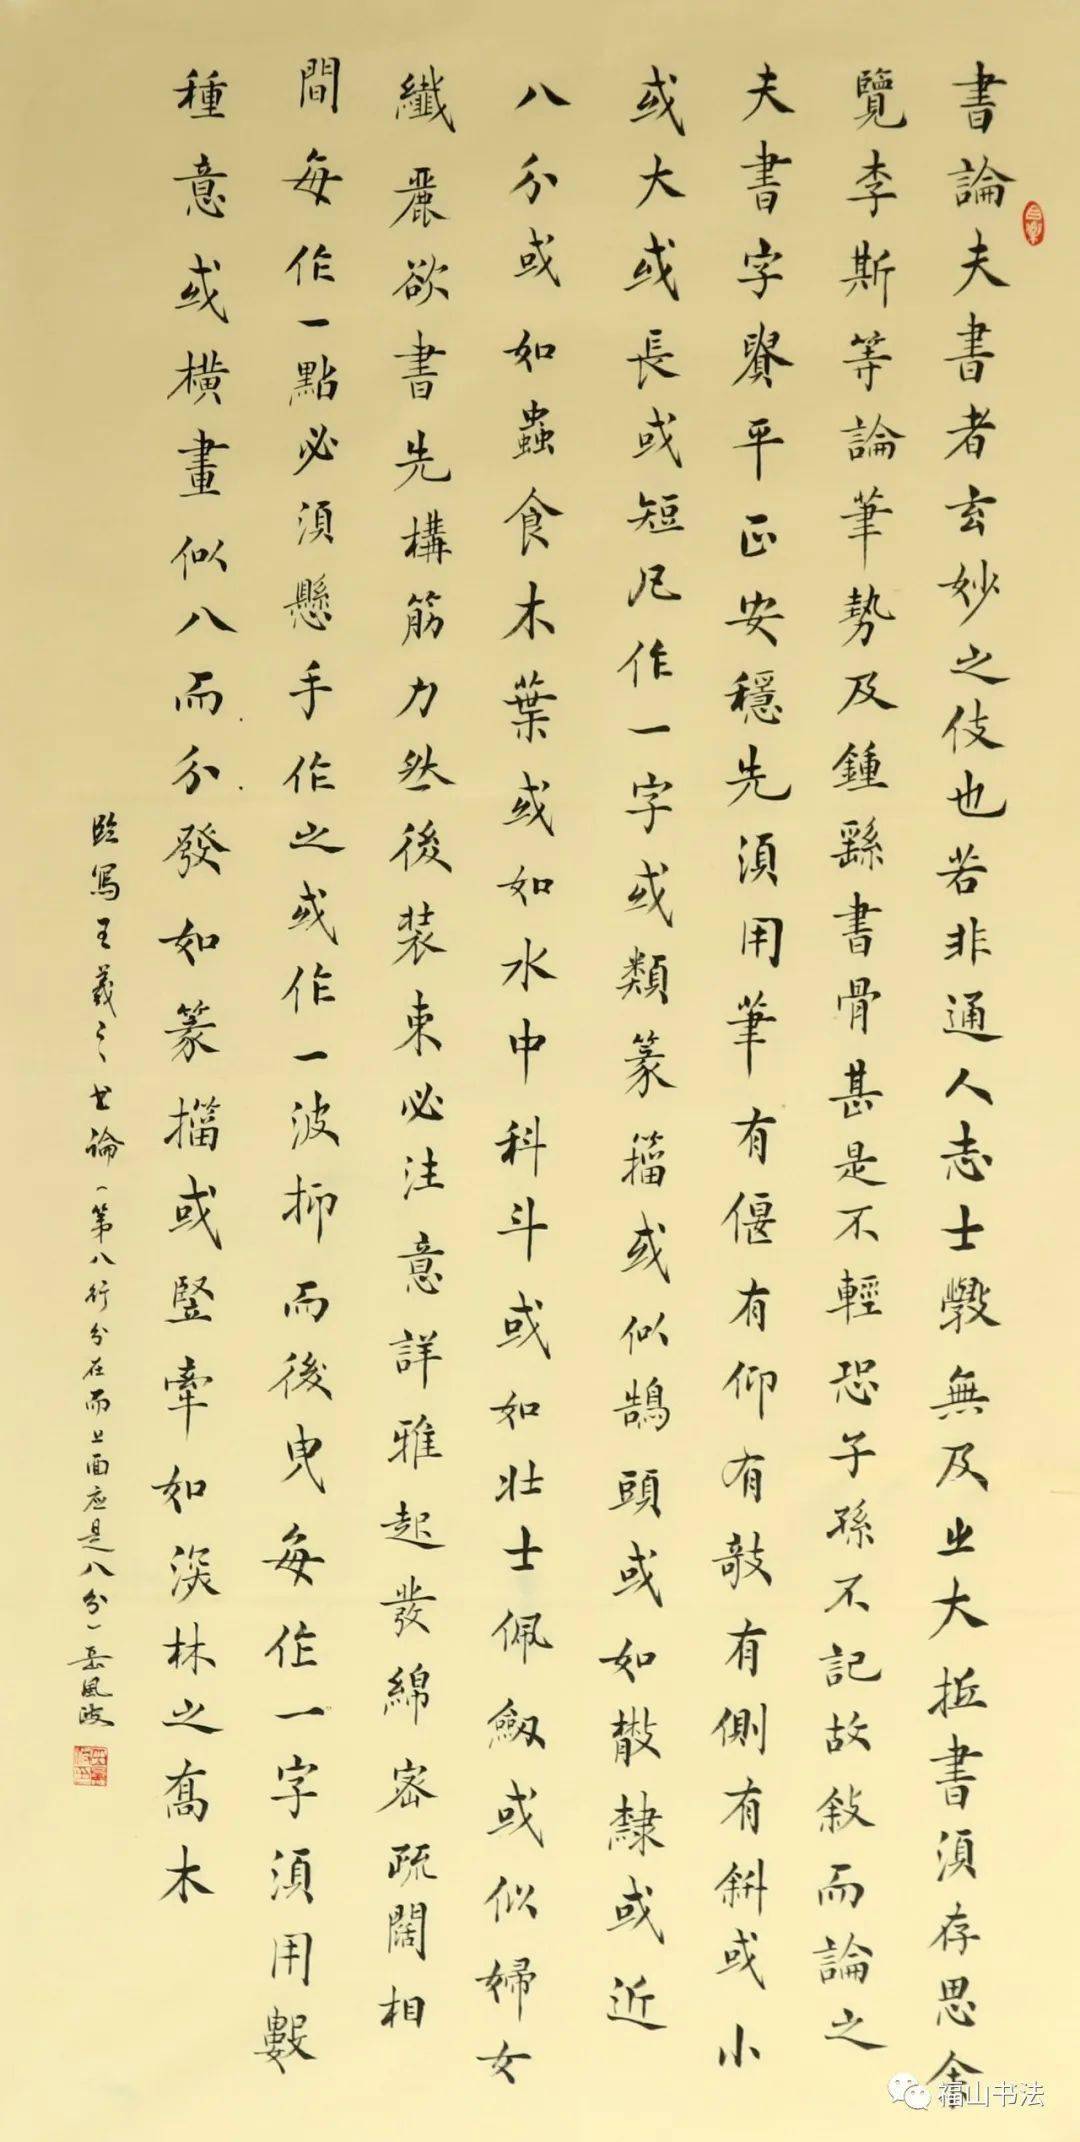 書論夫書者玄妙之伎也若非通人志士斅無及㞢大抵書須存思余
覽李斯等論筆勢及鍾繇書骨甚是不輕恐子孫不記故敘而論之
夫書字貴平正安穩先須用筆有偃有仰有敧有側有斜或小
或大或長或短凡作一字或類篆籀或似鵠頭或如散隸或近
八分或如蟲食木葉或如水中科斗或如壯士佩劔或似婦女
纖麗欲書先構筋力然後裝束必注意詳雅起發綿密疏闊相
間每作一點必須懸手作之或作一波抑而後曳每作一字須用數
種意或橫畫似八而分發如篆籀或豎牽如深林之喬木
臨写王羲之书論（第八行分在而上面应是八分）岳風波
福山书法